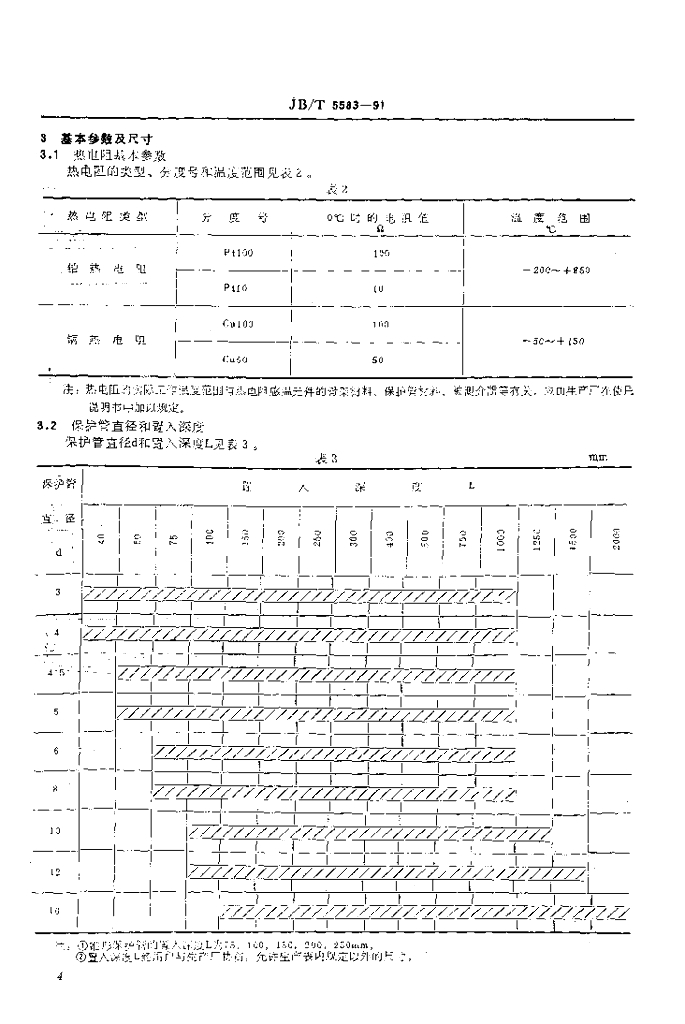 JB/T 5583—91
3 基本参数及尺寸
3.1 热电阻基本参数
热电阻的类型、分度号和温度范围见表2。
表2
热电阻类型 分度号 0℃时的电阻值 Ω 温度范围 ℃
铂热电阻 Pt100 100 －200～＋850
Pt10 10
铜热电阻 Cu100 100 －50～＋150
Cu50 50
注：热电阻的实际工作温度范围与热电阻感温元件的骨架材料、保护管材料、被测介质等有关，应由生产厂在使用
说明书中加以规定。
3.2 保护管直径和置入深度
保护管直径d和置入深度L见表3。
表3 mm
保护管 置入深度 L
直径
d 50 75 100 150 200 250 300 400 500 750 1000 1250 1500 2000
3
4
4.5
5
6
8
10
12
16
注：①锥形保护管的置入深度L为75，100，150，200，250mm。
②置入深度L经用户与生产厂协商，允许生产表内规定以外的尺寸。
4